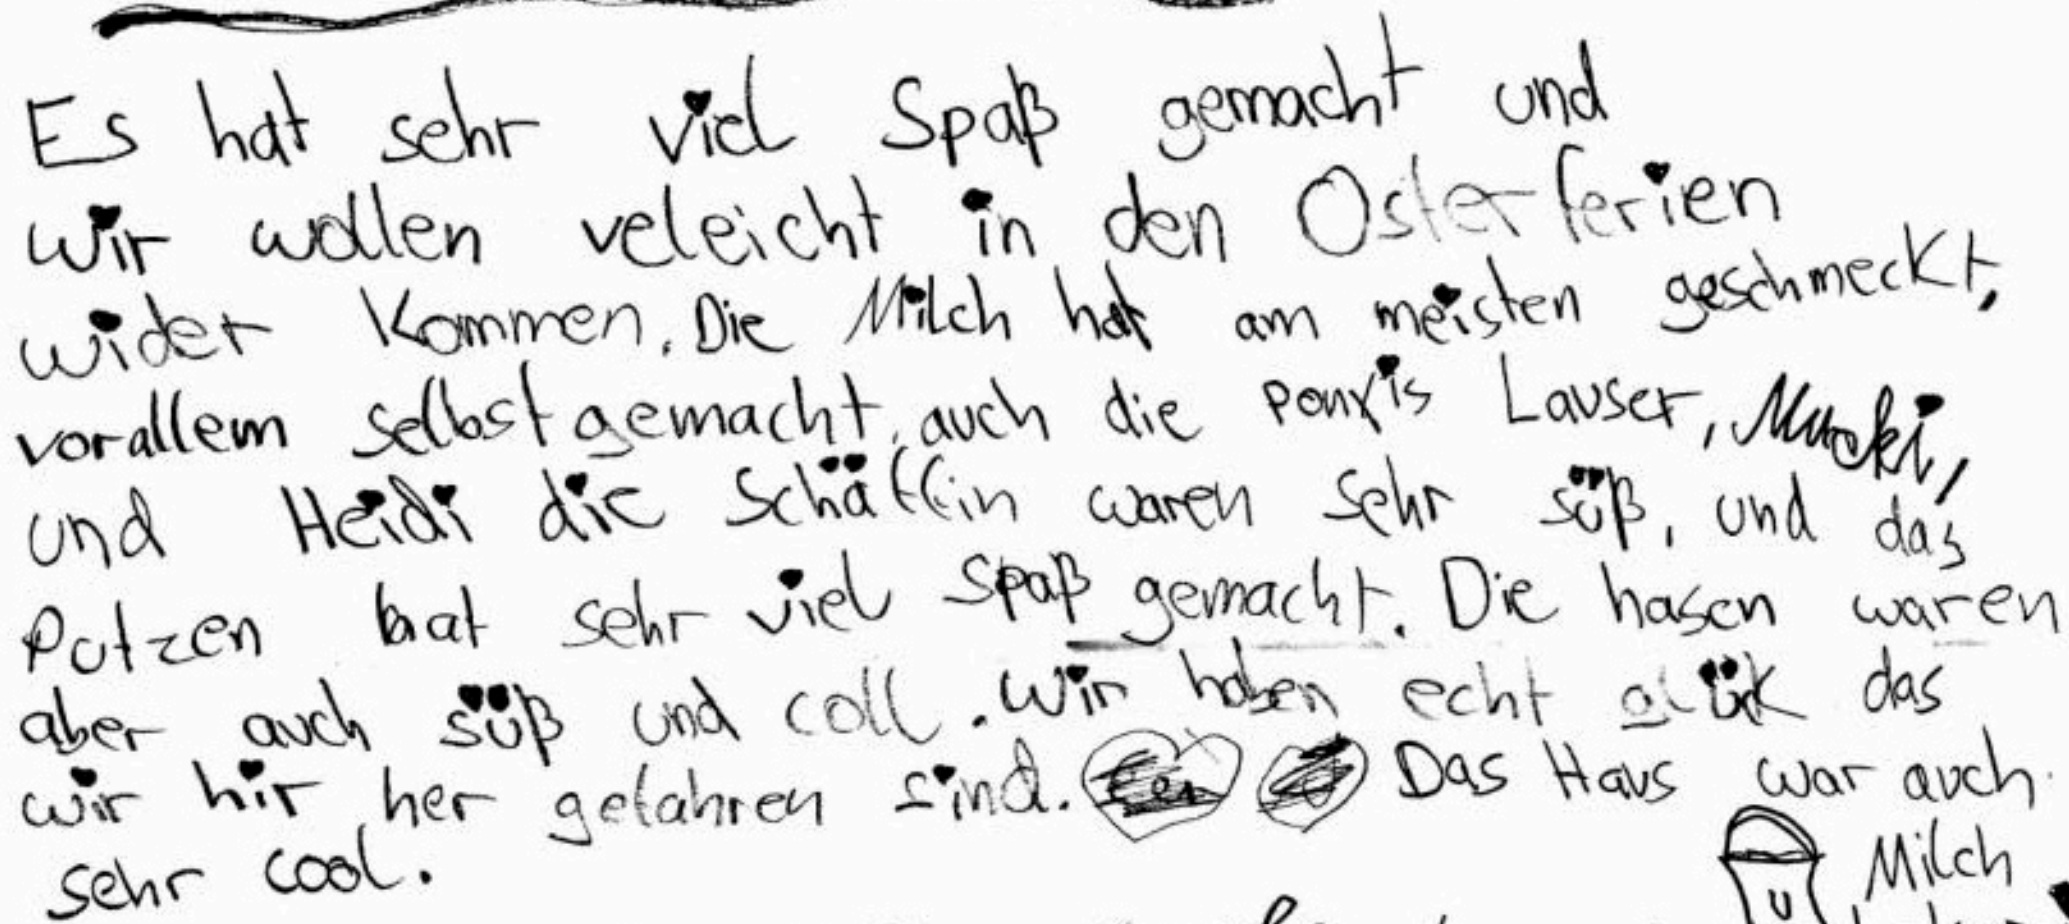 Es hat sehr viel Spaß gemacht und
wir wollen veleicht in den Osterferien
wider kommen. Die Milch hat am meisten geschmeckt,
vorallem selbstgemacht, auch die Ponys Lauser, Mucki,
und Heidi die Schäffin waren sehr süß, und das
Putzen hat sehr viel Spaß gemacht. Die hasen waren
aber auch süß und coll. Wir haben echt glük das
wir hir her gefahren sind. Das Haus war auch
sehr cool.
Milch